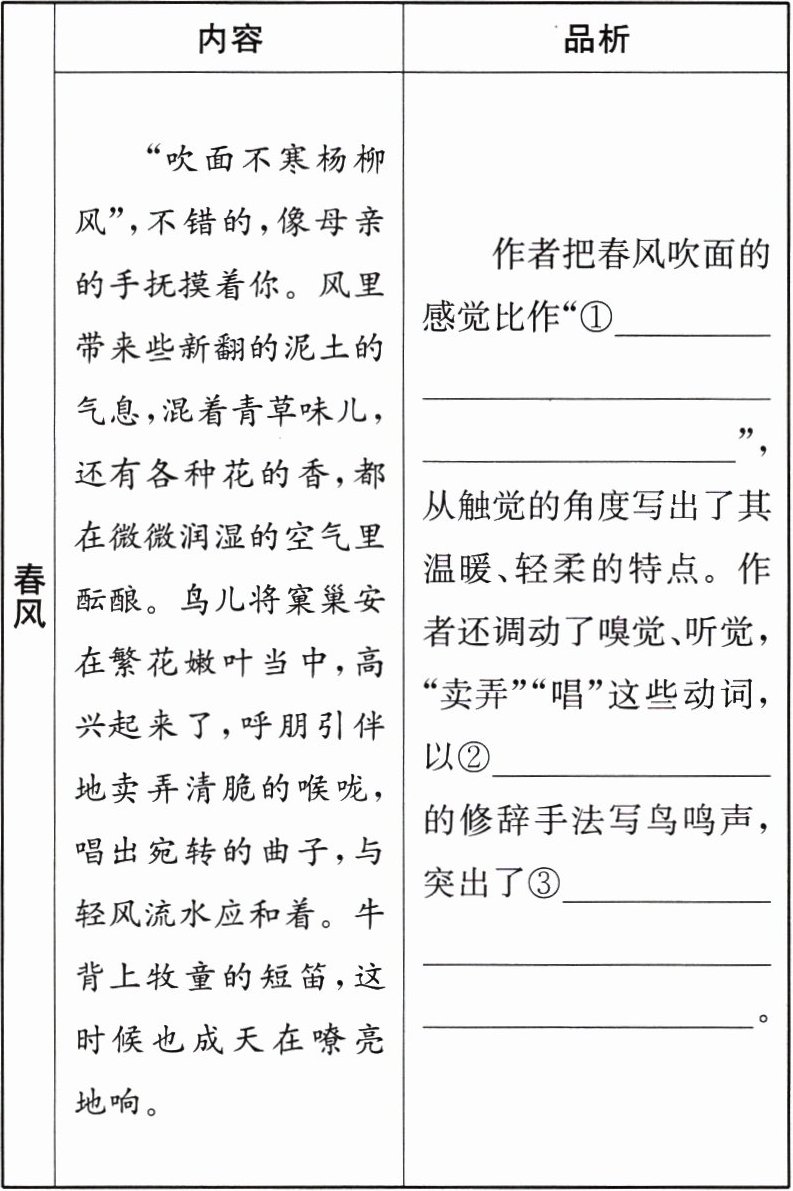 内容
品析
春风
“吹面不寒杨柳
风”，不错的，像母亲
的手抚摸着你。风里
带来些新翻的泥土的
气息，混着青草味儿，
还有各种花的香，都
在微微润湿的空气里
酝酿。鸟儿将窠巢安
在繁花嫩叶当中，高
兴起来了，呼朋引伴
地卖弄清脆的喉咙，
唱出宛转的曲子，与
轻风流水应和着。牛
背上牧童的短笛，这
时候也成天在嘹亮
地响。
作者把春风吹面的
感觉比作“①
”，
从触觉的角度写出了其
温暖、轻柔的特点。作
者还调动了嗅觉、听觉，
“卖弄”“唱”这些动词，
以②
的修辞手法写鸟鸣声，
突出了③
。